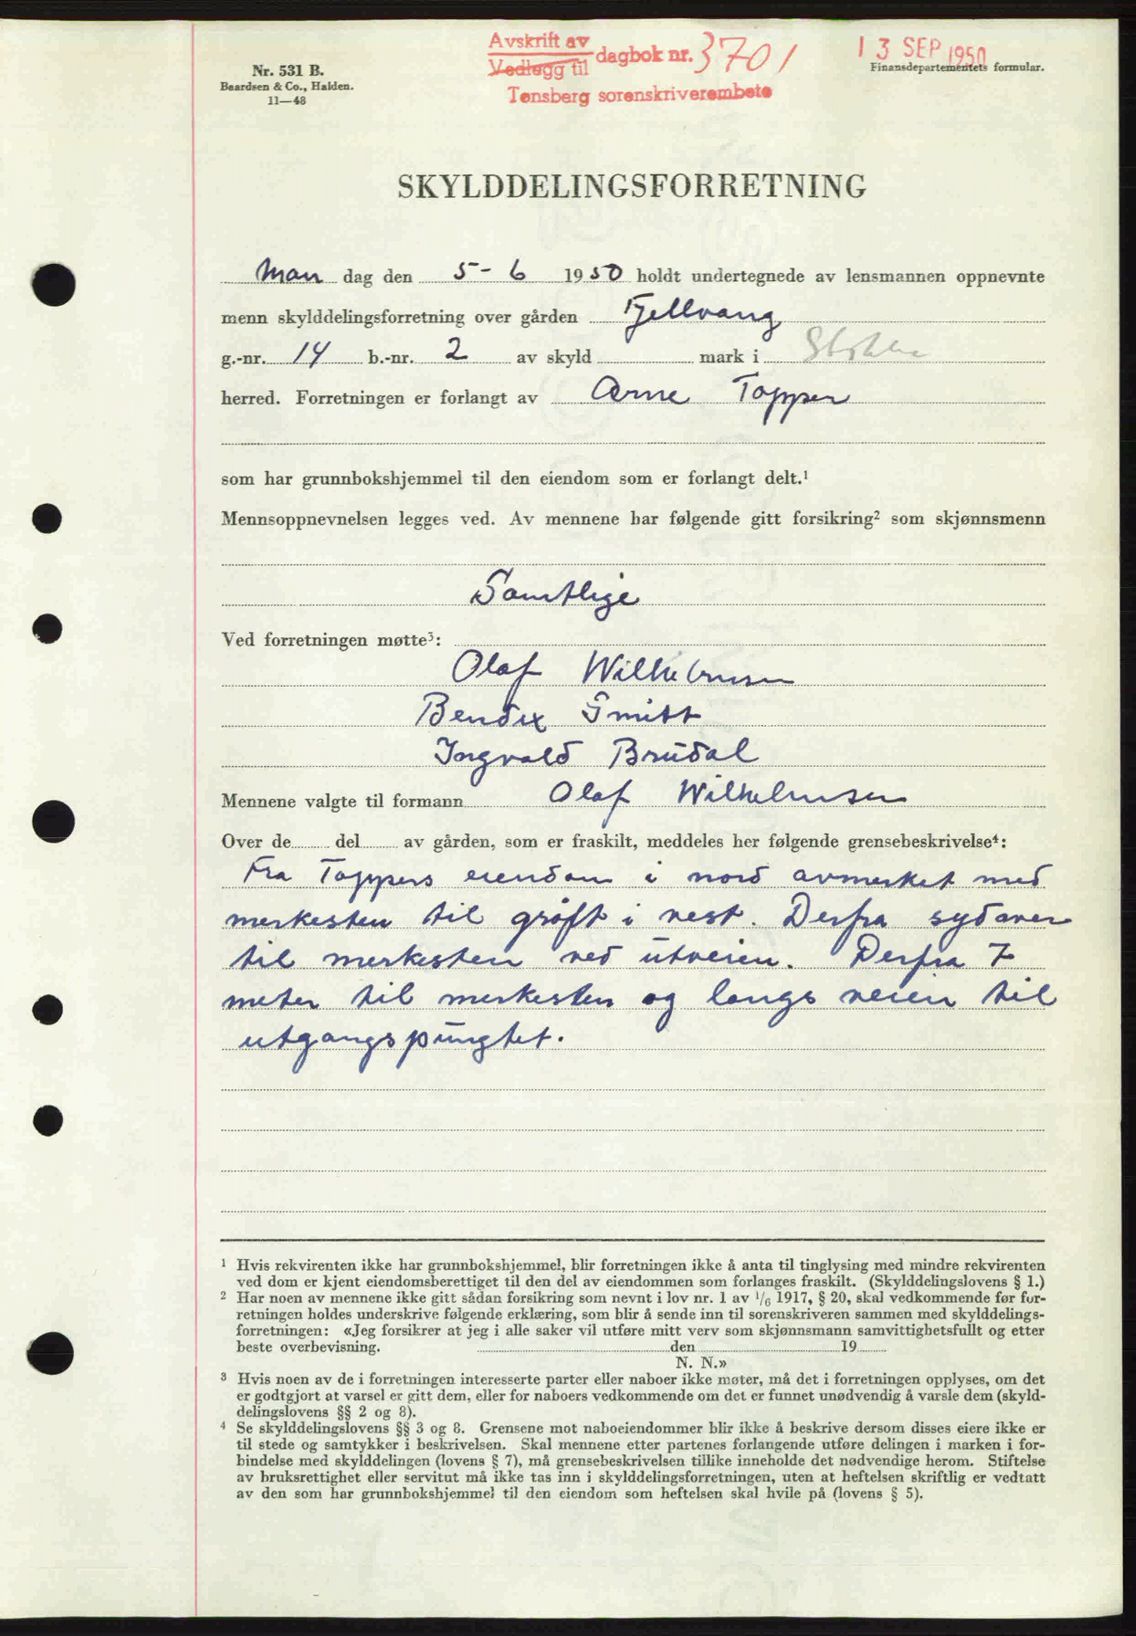 Avskrift av
Vedlegg til dagbok nr. 3701
Tønsberg sorenskriverembete
13 SEP 1950
Nr. 531 B.
Baardsen & Co., Halden.
11—48
Finansdepartementets formular.
SKYLDDELINGSFORRETNING
Man dag den 5-6 1950 holdt undertegnede av lensmannen oppnevnte
menn skylddelingsforretning over gården Fjellvang
g.-nr. 14 b.-nr. 2 av skyld mark i Stokke
herred. Forretningen er forlangt av Arne Topper
som har grunnbokshjemmel til den eiendom som er forlangt delt.¹
Mennsoppnevnelsen legges ved. Av mennene har følgende gitt forsikring² som skjønnsmenn
Samtlige
Ved forretningen møtte³:
Olaf Wilhelmsen
Bendix Smitt
Ingvald Brudal
Mennene valgte til formann Olaf Wilhelmsen
Over de del av gården, som er fraskilt, meddeles her følgende grensebeskrivelse⁴:
Fra Toppers eiendom i nord avmerket med
merkesten til grøft i vest. Derfra sydover
til merkesten ved utveien. Derfra 7
meter til merkesten og langs veien til
utgangspungtet.
¹ Hvis rekvirenten ikke har grunnbokshjemmel, blir forretningen ikke å anta til tinglysing med mindre rekvirenten
ved dom er kjent eiendomsberettiget til den del av eiendommen som forlanges fraskilt. (Skylddelingslovens § 1.)
² Har noen av mennene ikke gitt sådan forsikring som nevnt i lov nr. 1 av 1/6 1917, § 20, skal vedkommende før for-
retningen holdes underskrive følgende erklæring, som blir å sende inn til sorenskriveren sammen med skylddelings-
forretningen: «Jeg forsikrer at jeg i alle saker vil utføre mitt verv som skjønnsmann samvittighetsfullt og etter
beste overbevisning. den 19
N. N.»
³ Hvis noen av de i forretningen interesserte parter eller naboer ikke møter, må det i forretningen opplyses, om det
er godtgjort at varsel er gitt dem, eller for naboers vedkommende om det er funnet unødvendig å varsle dem (skyld-
delingslovens §§ 2 og 8).
⁴ Se skylddelingslovens §§ 3 og 8. Grensene mot naboeiendommer blir ikke å beskrive dersom disses eiere ikke er
til stede og samtykker i beskrivelsen. Skal mennene etter partenes forlangende utføre delingen i marken i for-
bindelse med skylddelingen (lovens § 7), må grensebeskrivelsen tillike inneholde det nødvendige herom. Stiftelse
av bruksrettighet eller servitut må ikke tas inn i skylddelingsforretningen, uten at heftelsen skriftlig er vedtatt
av den som har grunnbokshjemmel til den eiendom som heftelsen skal hvile på (lovens § 5).